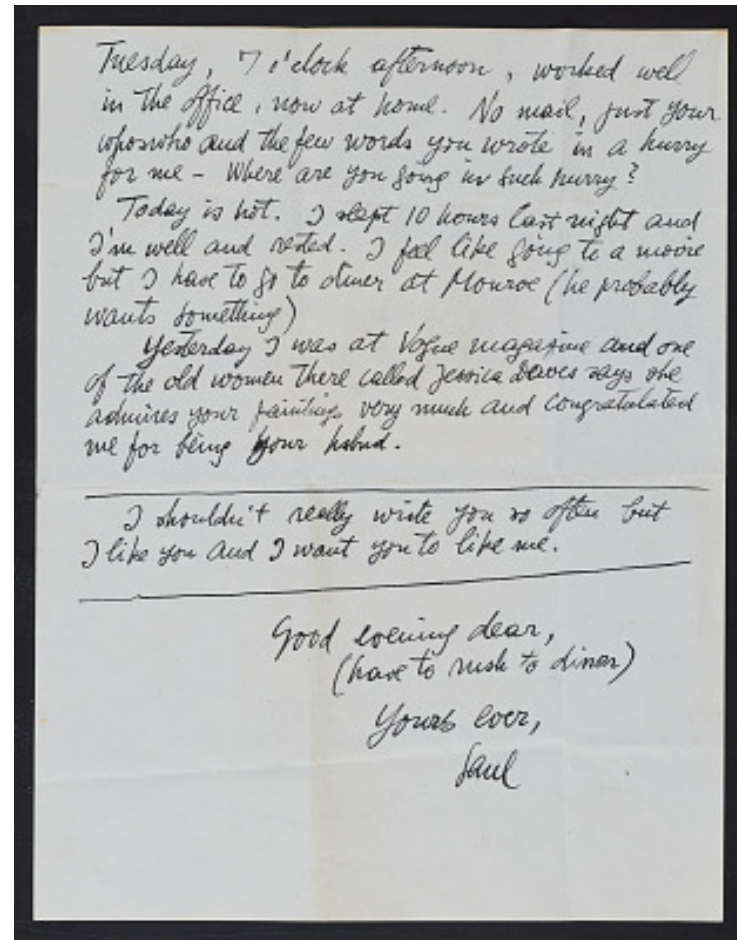 Tuesday, 7 o'clock afternoon, worked well
in the office, now at home. No mail, just your
whoswho and the few words you wrote in a hurry
for me – Where are you going in such hurry?
Today is hot. I slept 10 hours last night and
I'm well and rested. I feel like going to a movie
but I have to go to diner at Monroe (he probably
wants something)
Yesterday I was at Vogue magazine and one
of the old women there called Jessica Daves says she
admires your paintings very much and congratulated
me for being your husband.
I shouldn't really write you so often but
I like you and I want you to like me.
Good evening dear,
(have to rush to diner)
Yours ever,
Saul